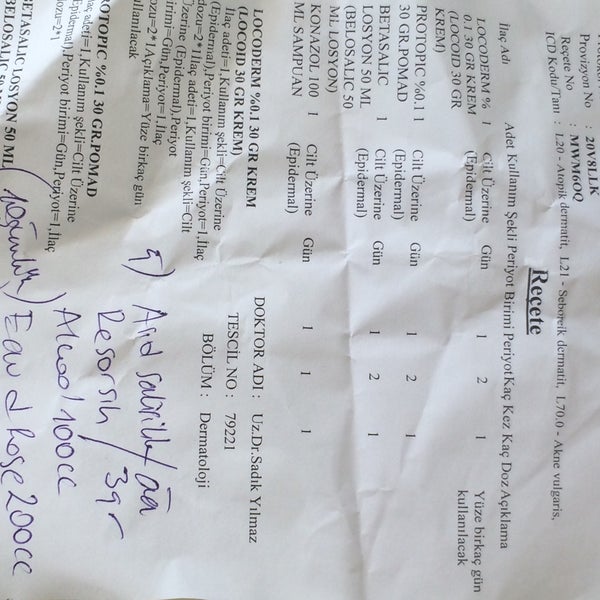 Provizyon No : 20V8LLK
Reçete No : MWM6OQ
ICD Kodu/Tanı : L20 - Atopik dermatit, L21 - Seboreik dermatit, L70.0 - Akne vulgaris,
Reçete
İlaç Adı Adet Kullanım Şekli Periyot Birimi Periyot Kaç Kez Kaç Doz Açıklama
LOCODERM % 1 Cilt Üzerine Gün 1 2 1 Yüze birkaç gün
0.1 30 GR KREM (Epidermal) kullanılacak
(LOCOID 30 GR
KREM)
PROTOPIC %0.1 1 Cilt Üzerine Gün 1 2 1
30 GR.POMAD (Epidermal)
BETASALIC 1 Cilt Üzerine Gün 1 2 1
LOSYON 50 ML (Epidermal)
(BELOSALIC 50
ML LOSYON)
KONAZOL 100 1 Cilt Üzerine Gün 1 1 1
ML SAMPUAN (Epidermal)
DOKTOR ADI : Uz.Dr.Sadık Yılmaz
TESCİL NO : 79221
BÖLÜM : Dermatoloji
LOCODERM %0.1 30 GR KREM
(LOCOID 30 GR KREM)
İlaç adeti=1,Kullanım şekli=Cilt Üzerine
(Epidermal),Periyot birimi=Gün,Periyot=1,İlaç
dozu=2*1İlaç adeti=1,Kullanım şekli=Cilt
Üzerine (Epidermal),Periyot
birimi=Gün,Periyot=1,İlaç
dozu=2*1Açıklama=Yüze birkaç gün
kullanılacak
PROTOPIC %0.1 30 GR.POMAD
adeti=1,Kullanım şekli=Cilt Üzerine
(Epidermal),Periyot birimi=Gün,Periyot=1,İlaç
dozu=2*1
BETASALIC LOSYON 50 ML
BELOSALIC 50 ML
Resorsin 3gr
Alcool 100cc
Eau d Rose 200cc